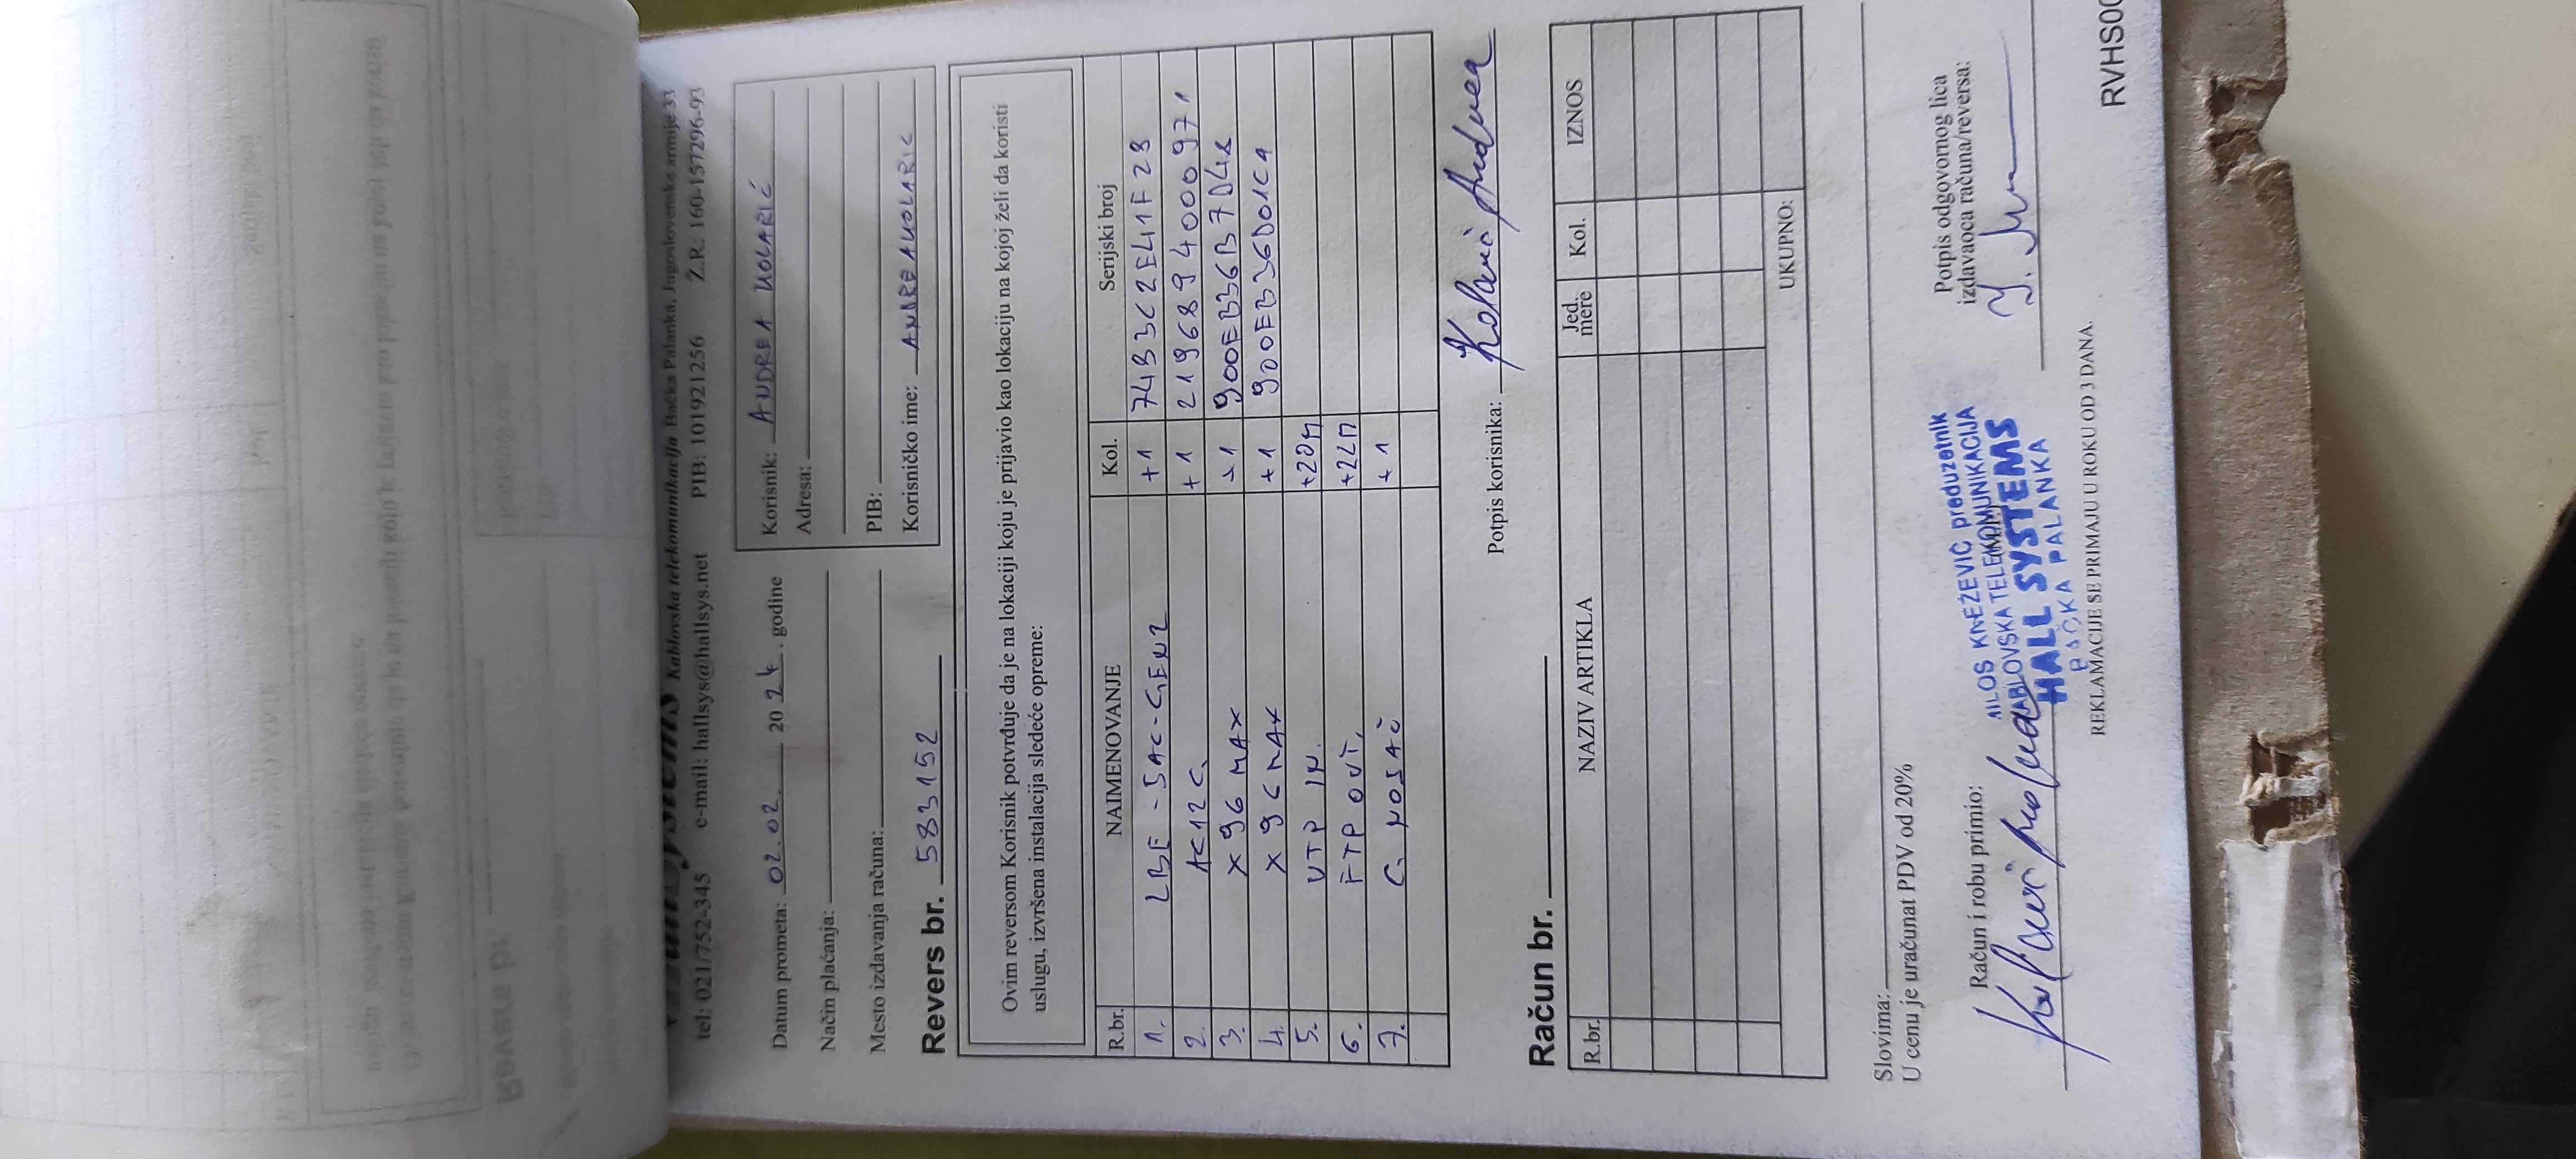 HallSystems Kablovska telekomunikacija Bačka Palanka, Jugoslovenske armije 33
tel: 021/752-345 e-mail: hallsys@hallsys.net PIB: 101921256 Ž.R: 160-157296-93
Datum prometa: 02.02. 2024. godine
Način plaćanja:
Mesto izdavanja računa:
Korisnik: ANDREA KOLARIĆ
Adresa:
PIB:
Korisničko ime: ANDREAKOLARIC
Revers br. 583152
Ovim reversom Korisnik potvrđuje da je na lokaciji koju je prijavio kao lokaciju na kojoj želi da koristi
uslugu, izvršena instalacija sledeće opreme:
R.br. NAIMENOVANJE Kol. Serijski broj
1. LBE-5AC-GEN2 +1 7483C2E41F28
2. AC12G +1 2196894000971
3. X96 MAX +1 900EB36B7D48
4. X96 MAX +1 900EB36D01C9
5. UTP IN. +20M
6. FTP OUT. +22M
7. G. NOSAČ +1
Potpis korisnika: Kolarić Andrea
Račun br.
R.br. NAZIV ARTIKLA Jed. mere Kol. IZNOS
UKUPNO:
Slovima:
U cenu je uračunat PDV od 20%
Račun i robu primio:
Kolarić Andrea
MILOŠ KNEŽEVIĆ preduzetnik
KABLOVSKA TELEKOMUNIKACIJA
HALL SYSTEMS
BAČKA PALANKA
Potpis odgovornog lica
izdavaoca računa/reversa:
REKLAMACIJE SE PRIMAJU U ROKU OD 3 DANA.
RVHS00